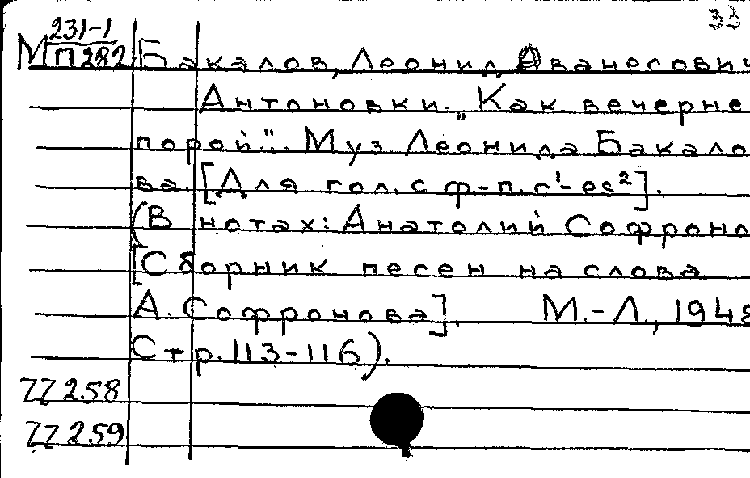 33
231-1
М П282 Бакалов, Леонид Ованесович
Антоновки. „Как вечерне
порой". Муз Леонида Бакало
ва. [Для гол. с ф-п. c¹-es²].
(В нотах: Анатолий Софроно
[Сборник песен на слова
А. Софронова]. М.-Л., 1948
Стр. 113-116).
ZZ 258
ZZ 259